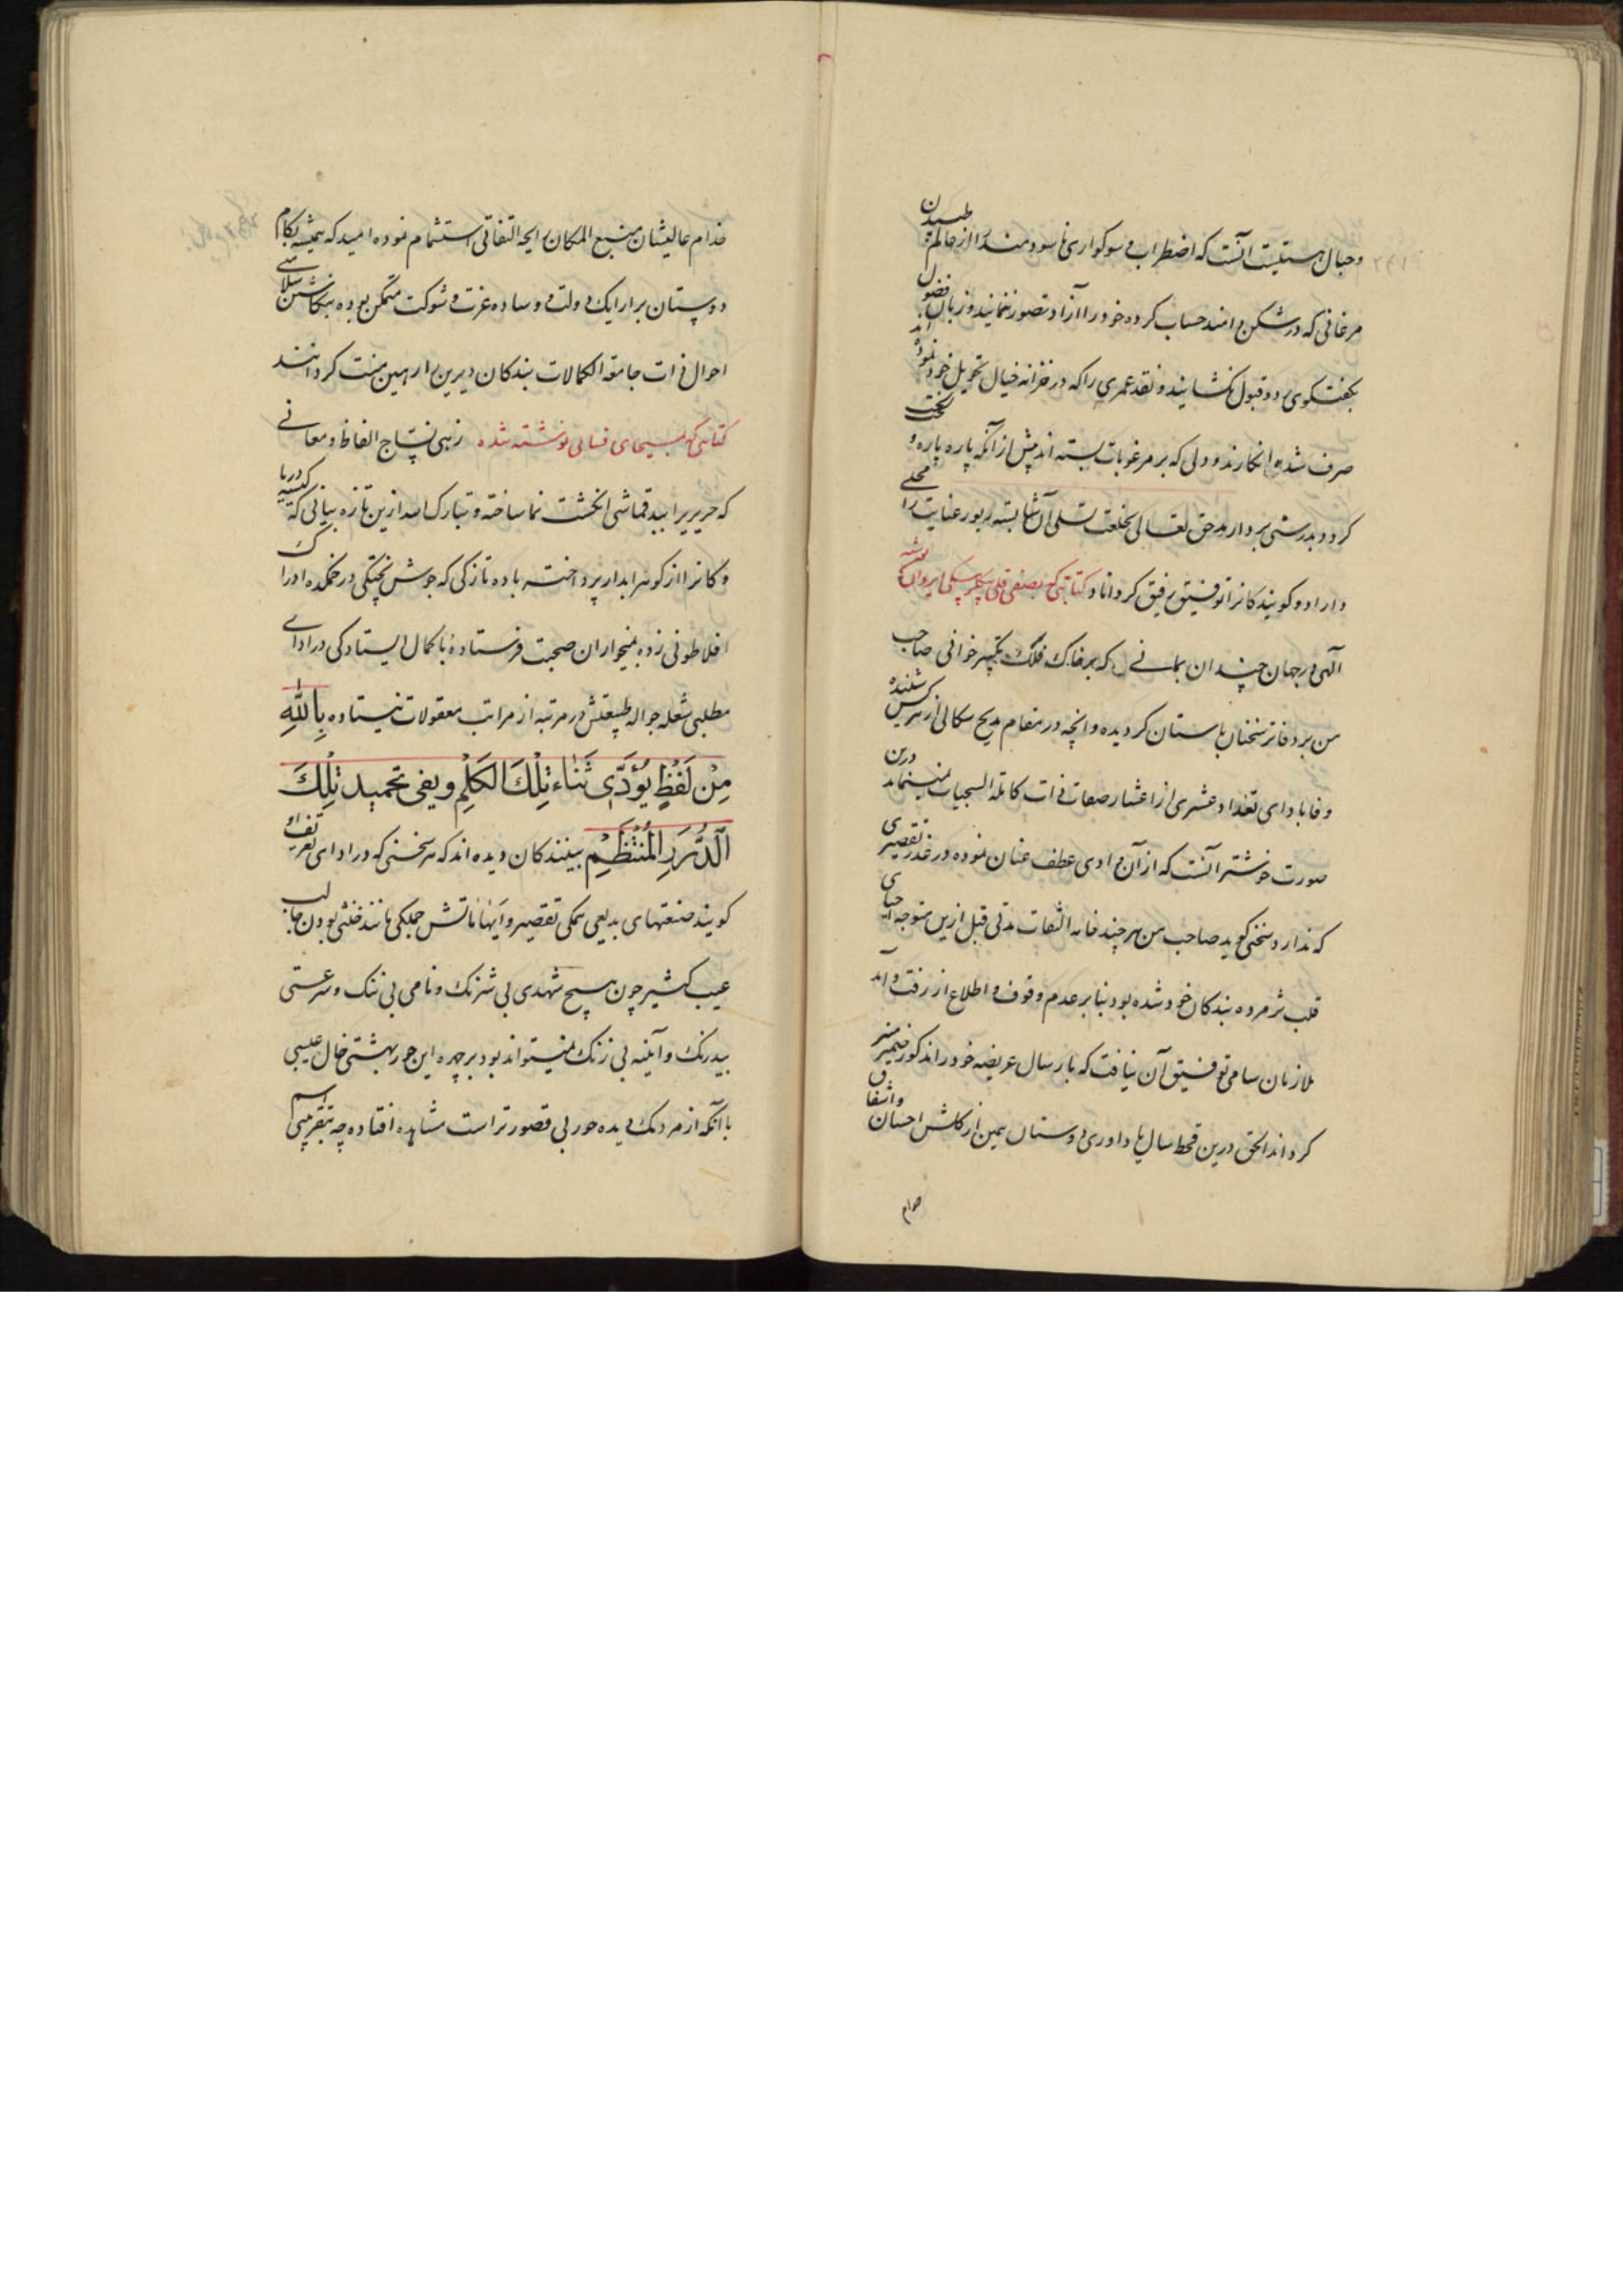 و حبال هستیست آنست که اضطراب و سوکواری ناسودمند را از عالم طپیدن
مرغانی که در شکن دامند حساب کرده خود را آزاد تصور ننمایند و زبان فضول
بگفتگوی رد و قبول نکشایند و نقد عمری را که در خزانه خیال تحویل خود نموده اند
صرف شده انکارند و دلی که بر مرغوبات بسته اند پیش از آنکه پاره پاره و لخت لخت
کردد بدرستی بردارند حق تعالی بخلعت تسلی آن شایسته زیور عنایت را محلی
داراد و کویند کانرا توفیق رفیق کرداناد کتابتی که بصفی قلی بیکلربیکی ایروان نوشته
الهی در جهان چندان بمانی که بر خاک فلک تکبیر خوانی صاحب
من بر دفاتر سخنان باستان کردیده و انچه در مقام مدیح سکالی از هر کس شنیده
وفا بادای تعداد عشری از اعشار صفات ذات کاملة السجیات نمینماید درین
صورت خوشتر آنست که از آن وادی عطف عنان نموده در عذر تقصیری
که ندارد سخنی کوید صاحب من هر چند خامه التفات مدتی قبل ازین متوجه احیای
قلب پژمرده بندکان خود شده بود بنا بر عدم وقوف و اطلاع از رفت و آمد
ملازمان سامی توفیق آن نیافت که بارسال عریضه خود را مذکور ضمیر منیر
کرداند الحق درین قحط سال یاد آوری دوستان همین از کلشن احسان و اشفاق
خدام
خدام عالیشان منیع المکان رایحه التفاتی استشمام نموده امید که همیشه بکام
دوستان بر ارایک دولت و وساده عزت و شوکت متمکن بوده بنکاشتن سلامتی
احوال ذات جامعة الکمالات بندکان دیرین را رهین منت کردانند
کتابتی که بمسیحای فسائی نوشته شده زهی نساج الفاظ و معانی
که حریر پرابید قماشی انکشت نما ساخته و تبارک الله ازین تازه بیانی که کیسه دریا
و کانرا از کوهر آبدار پرداخته باده تازکی که جوش پختکی در خمکده ادراک
افلاطونی زده بمیخواران صحبت فرستاده با کمال ایستادکی در ادای
مطلبی شعله جواله طبیعتش در مرتبه از مراتب معقولات نیستاده بِاللّٰهِ
مِنْ لَفْظٍ یُؤَدّی ثَنَاءَ تِلْكَ الْکَلِمِ ویفی تحمید تِلْكَ
اَلدُّرَرِ الْمُنْتَظَمِ بینندکان دیده اند که هر سخنی که در ادای تعریف او
کویند صنعتهای بدیعی همکی تقصیر و آنها ناتش جملکی مانند خنثی بودن جالب
عیب کشیر چون هیچ شهدی بی شرنک و نامی بی ننک و سرعتی
بیدرنک و آینه بی زنک نمیتواند بود بر چهره این حور بهشتی خال عیبی
با آنکه از مردمک دیده حور بی قصور تر است مشاهده افتاده چه بتقریبی اسم